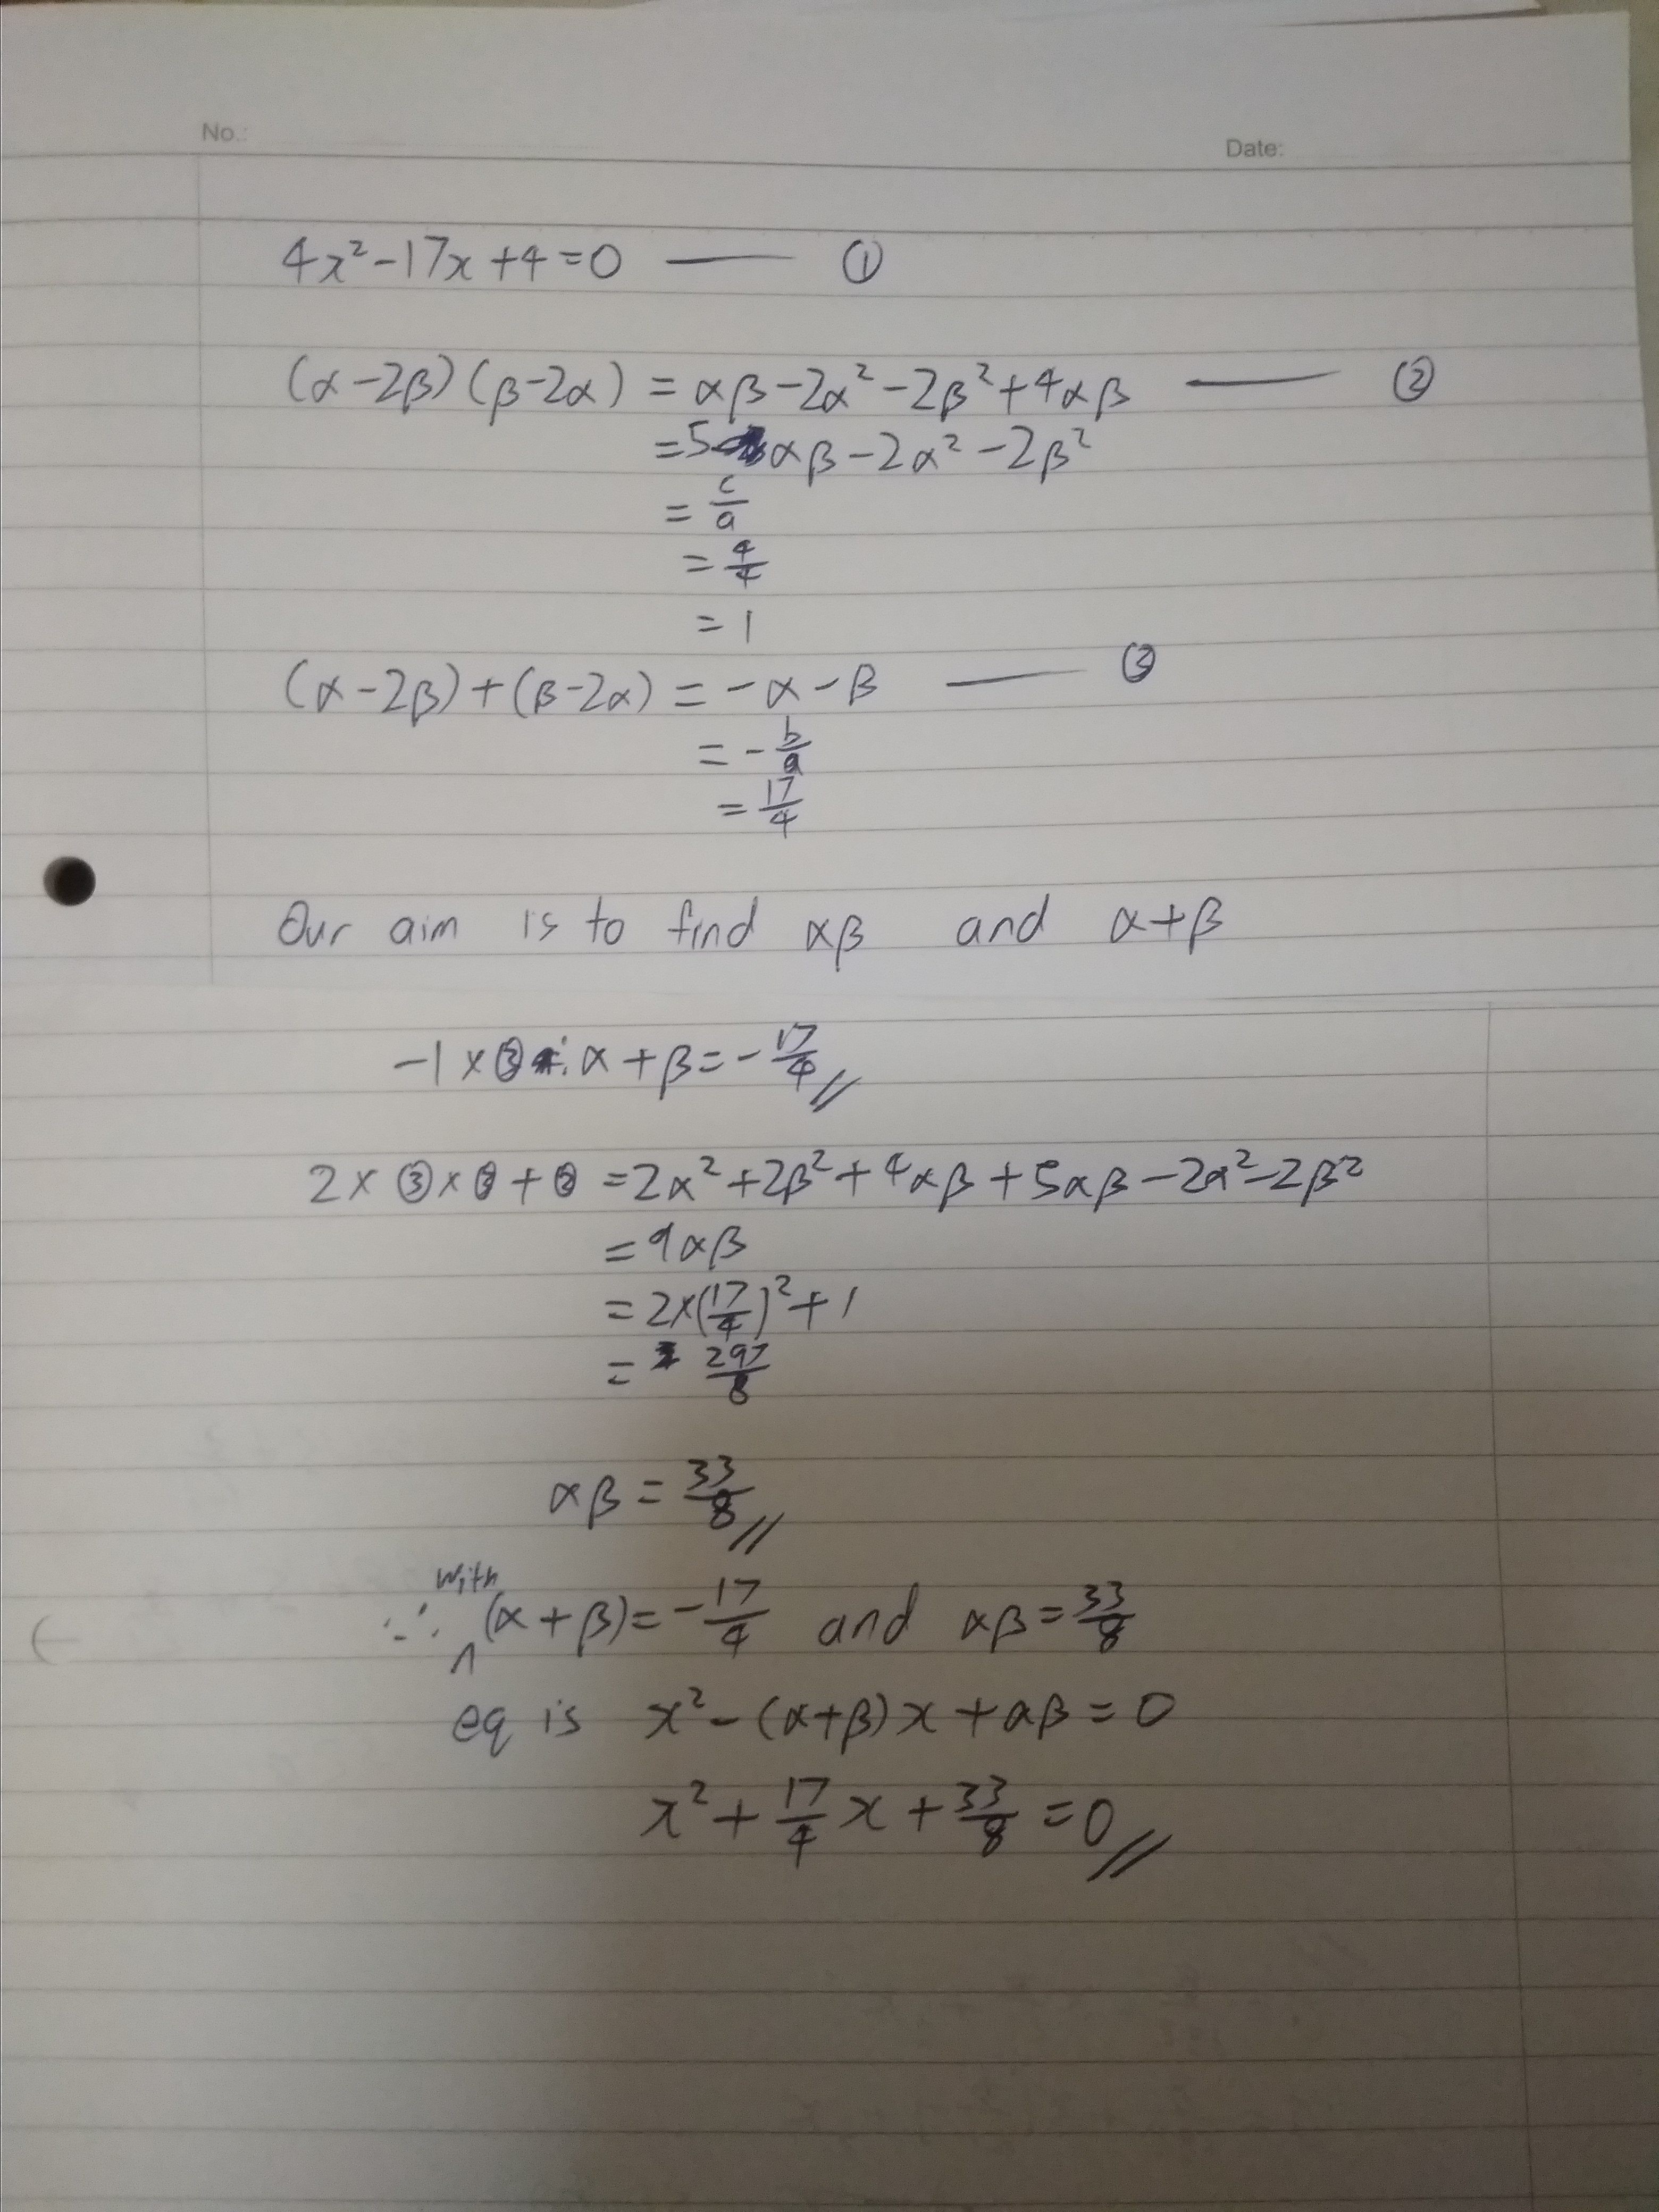 No.:
Date:
4x² - 17x + 4 = 0 —— ①
(α - 2β)(β - 2α) = αβ - 2α² - 2β² + 4αβ —— ②
= 5αβ - 2α² - 2β²
= c/a
= 4/4
= 1
(α - 2β) + (β - 2α) = -α - β —— ③
= - b/a
= 17/4
Our aim is to find αβ and α + β
-1 × ③ : α + β = - 17/4 //
2 × ③ × ③ + ② = 2α² + 2β² + 4αβ + 5αβ - 2α² - 2β²
= 9αβ
= 2 × (17/4)² + 1
= 297/8
αβ = 33/8 //
∴ with (α + β) = - 17/4 and αβ = 33/8
eq is x² - (α + β)x + αβ = 0
x² + 17/4 x + 33/8 = 0 //